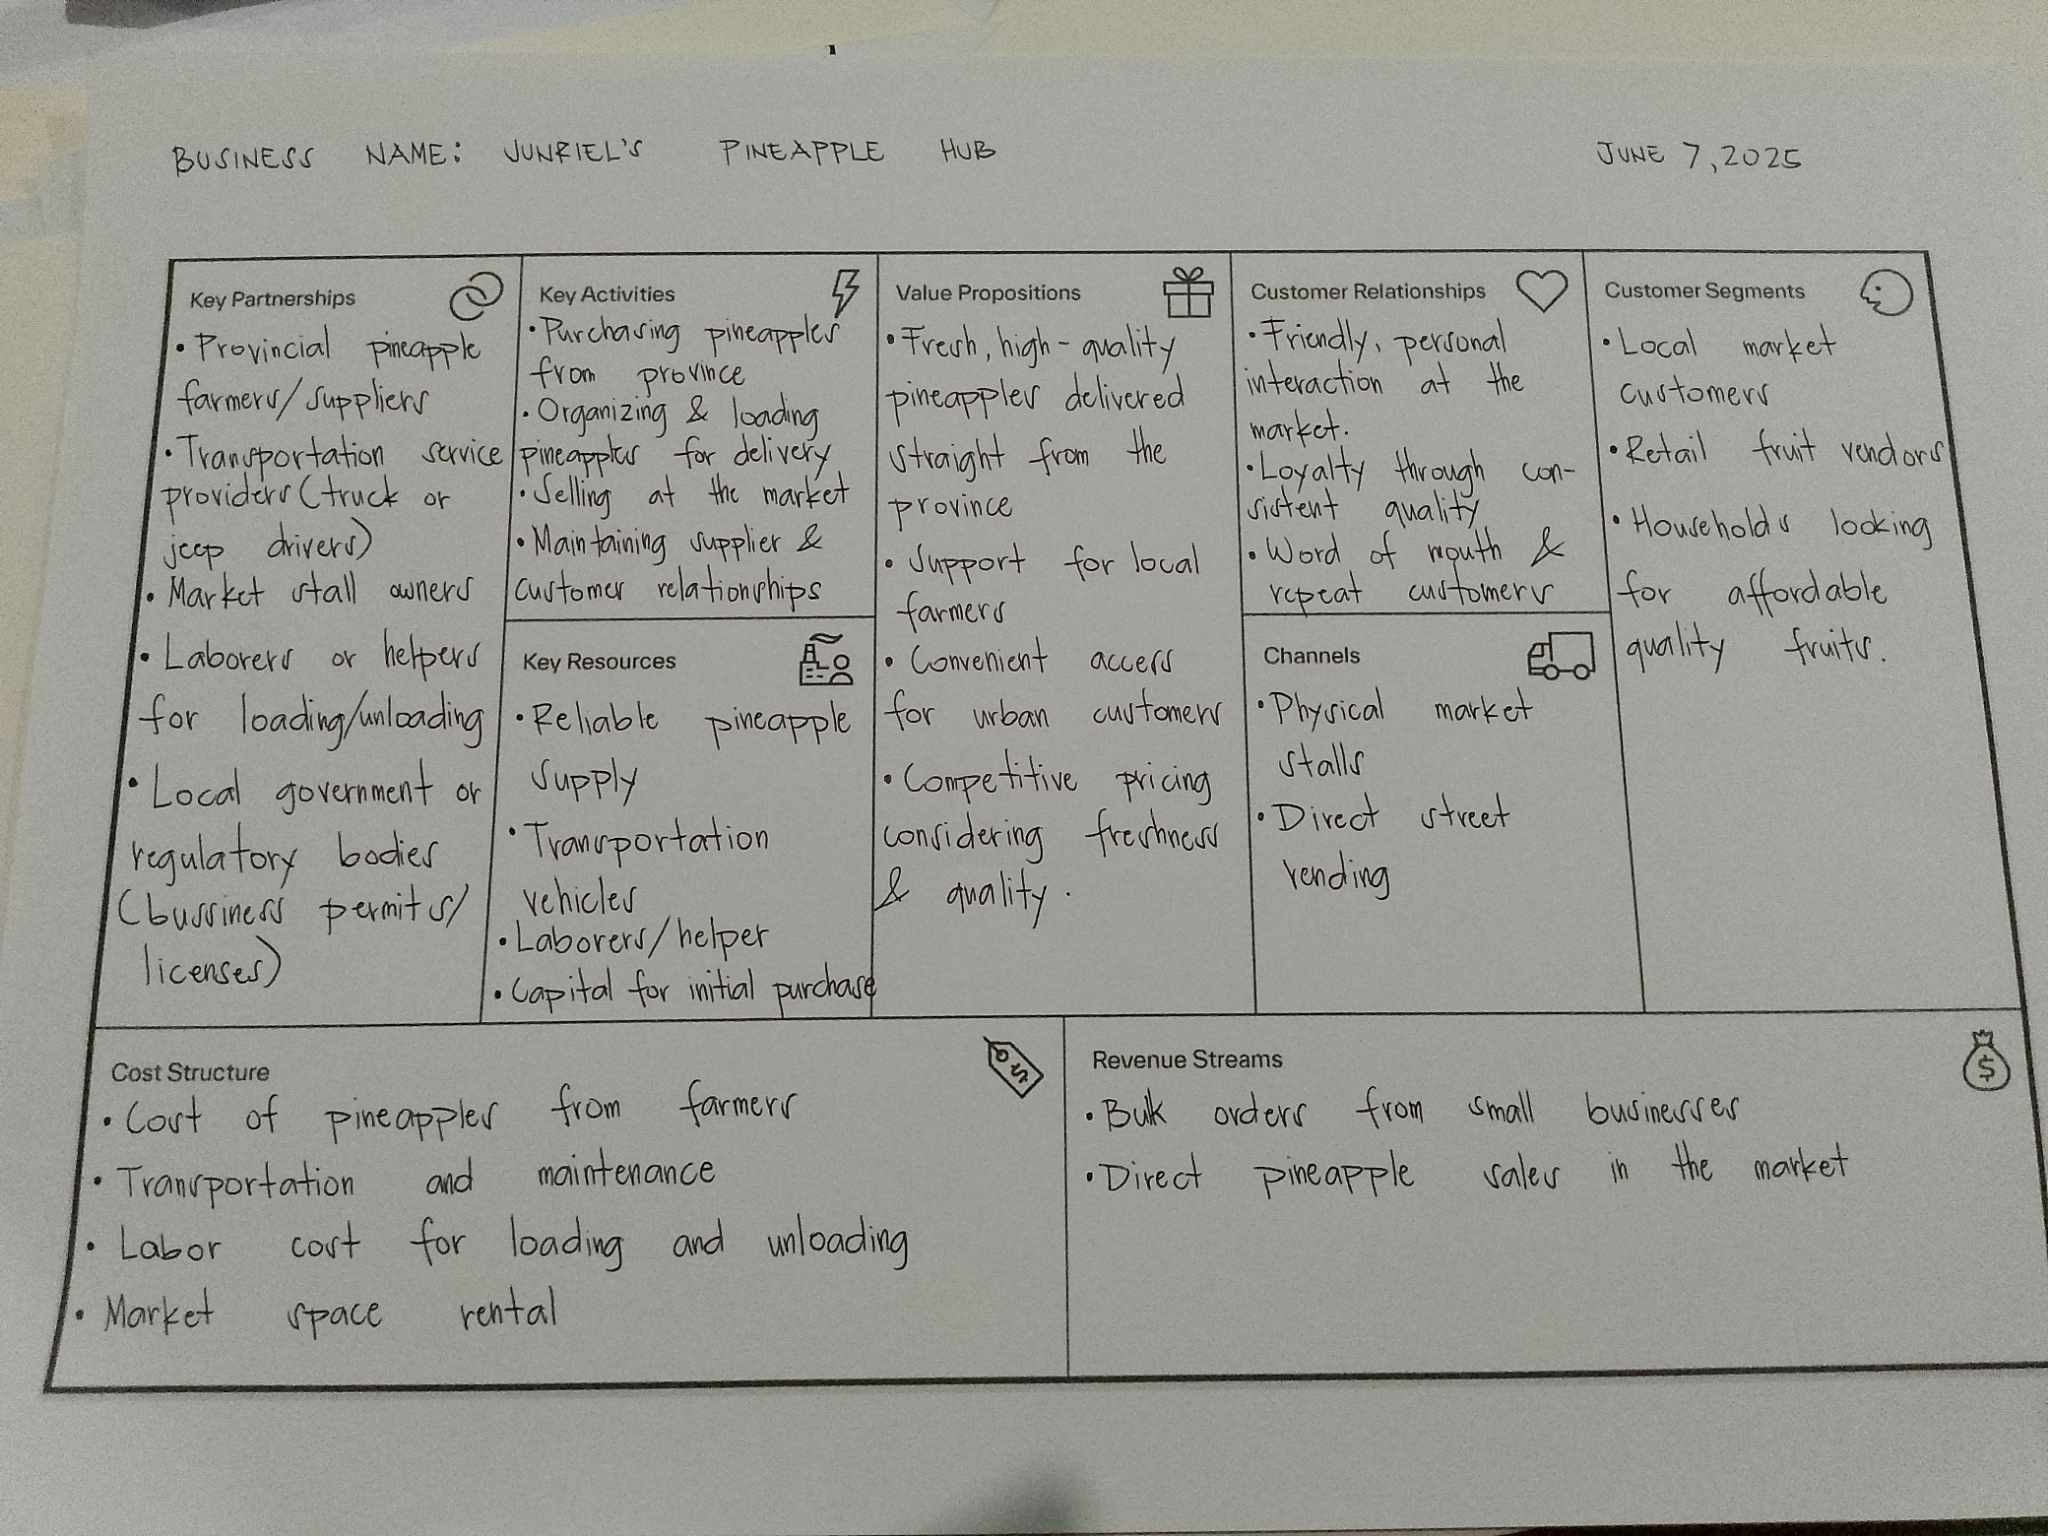 BUSINESS NAME: JUNRIEL'S PINEAPPLE HUB
JUNE 7, 2025
Key Partnerships
• Provincial pineapple
farmers/suppliers
• Transportation service
providers (truck or
jeep drivers)
• Market stall owners
• Laborers or helpers
for loading/unloading
• Local government or
regulatory bodies
(bussiness permits/
licenses)
Key Activities
• Purchasing pineapples
from province
• Organizing & loading
pineapples for delivery
• Selling at the market
• Maintaining supplier &
customer relationships
Key Resources
• Reliable pineapple
supply
• Transportation
vehicles
• Laborers/helper
• Capital for initial purchase
Value Propositions
• Fresh, high-quality
pineapples delivered
straight from the
province
• Support for local
farmers
• Convenient access
for urban customers
• Competitive pricing
considering freshness
& quality.
Customer Relationships
• Friendly, personal
interaction at the
market.
• Loyalty through con-
sistent quality
• Word of mouth &
repeat customers
Channels
• Physical market
stalls
• Direct street
vending
Customer Segments
• Local market
customers
• Retail fruit vendors
• Households looking
for affordable
quality fruits.
Cost Structure
• Cost of pineapples from farmers
• Transportation and maintenance
• Labor cost for loading and unloading
• Market space rental
Revenue Streams
• Bulk orders from small businesses
• Direct pineapple sales in the market